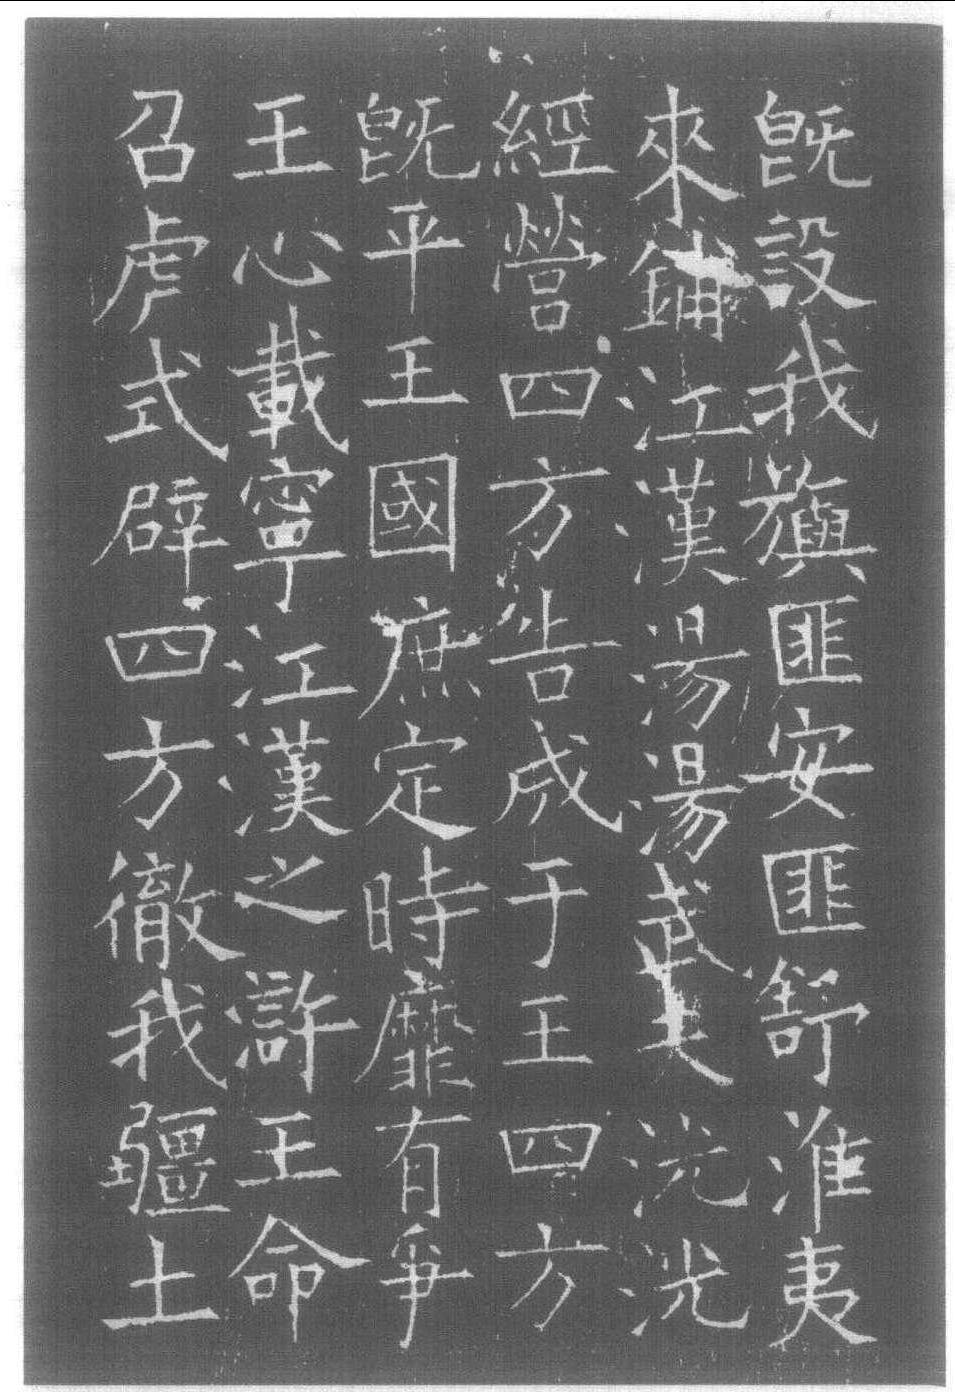 既設我旟匪安匪舒淮夷
來鋪江漢湯湯武夫洸洸
經營四方告成于王四方
既平王國庶定時靡有爭
王心載寧江漢之滸王命
召虎式辟四方徹我疆土